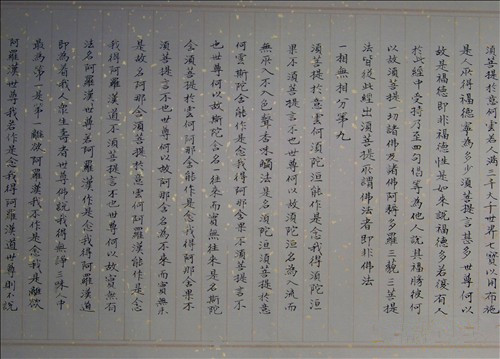 須菩提於意云何若人滿三千大千世界七寶以用布施
是人所得福德寧為多少須菩提言甚多世尊何以
故是福德即非福德性是如來說福德多若復有人
於此經中受持乃至四句偈等為他人說其福勝彼何
以故須菩提一切諸佛及諸佛阿耨多羅三藐三菩提
法皆從此經出須菩提所謂佛法者即非佛法
一相無相分第九
須菩提於意云何須陀洹能作是念我得須陀洹
果不須菩提言不也世尊何以故須陀洹名為入流而
無所入不入色聲香味觸法是名須陀洹須菩提於意
何雲斯陀含能作是念我得阿那含果不須菩提言不
也世尊何以故斯陀含名一往來而實無往來是名斯陀
含須菩提於云何阿那含能作是念我得阿那含果不
須菩提言不也世尊何以故阿那含名為不來而實無來
是故名阿那含須菩提於意云何阿羅漢能作是念
我得阿羅漢道不須菩提言不也世尊何以故實無有
法名阿羅漢世尊若阿羅漢作是念我得阿羅漢道
即為著我人眾生壽者世尊佛說我得無諍三昧人中
最為第一是第一離欲阿羅漢我不作是念我是離欲
阿羅漢世尊我若作是念我得阿羅漢道世尊則不說